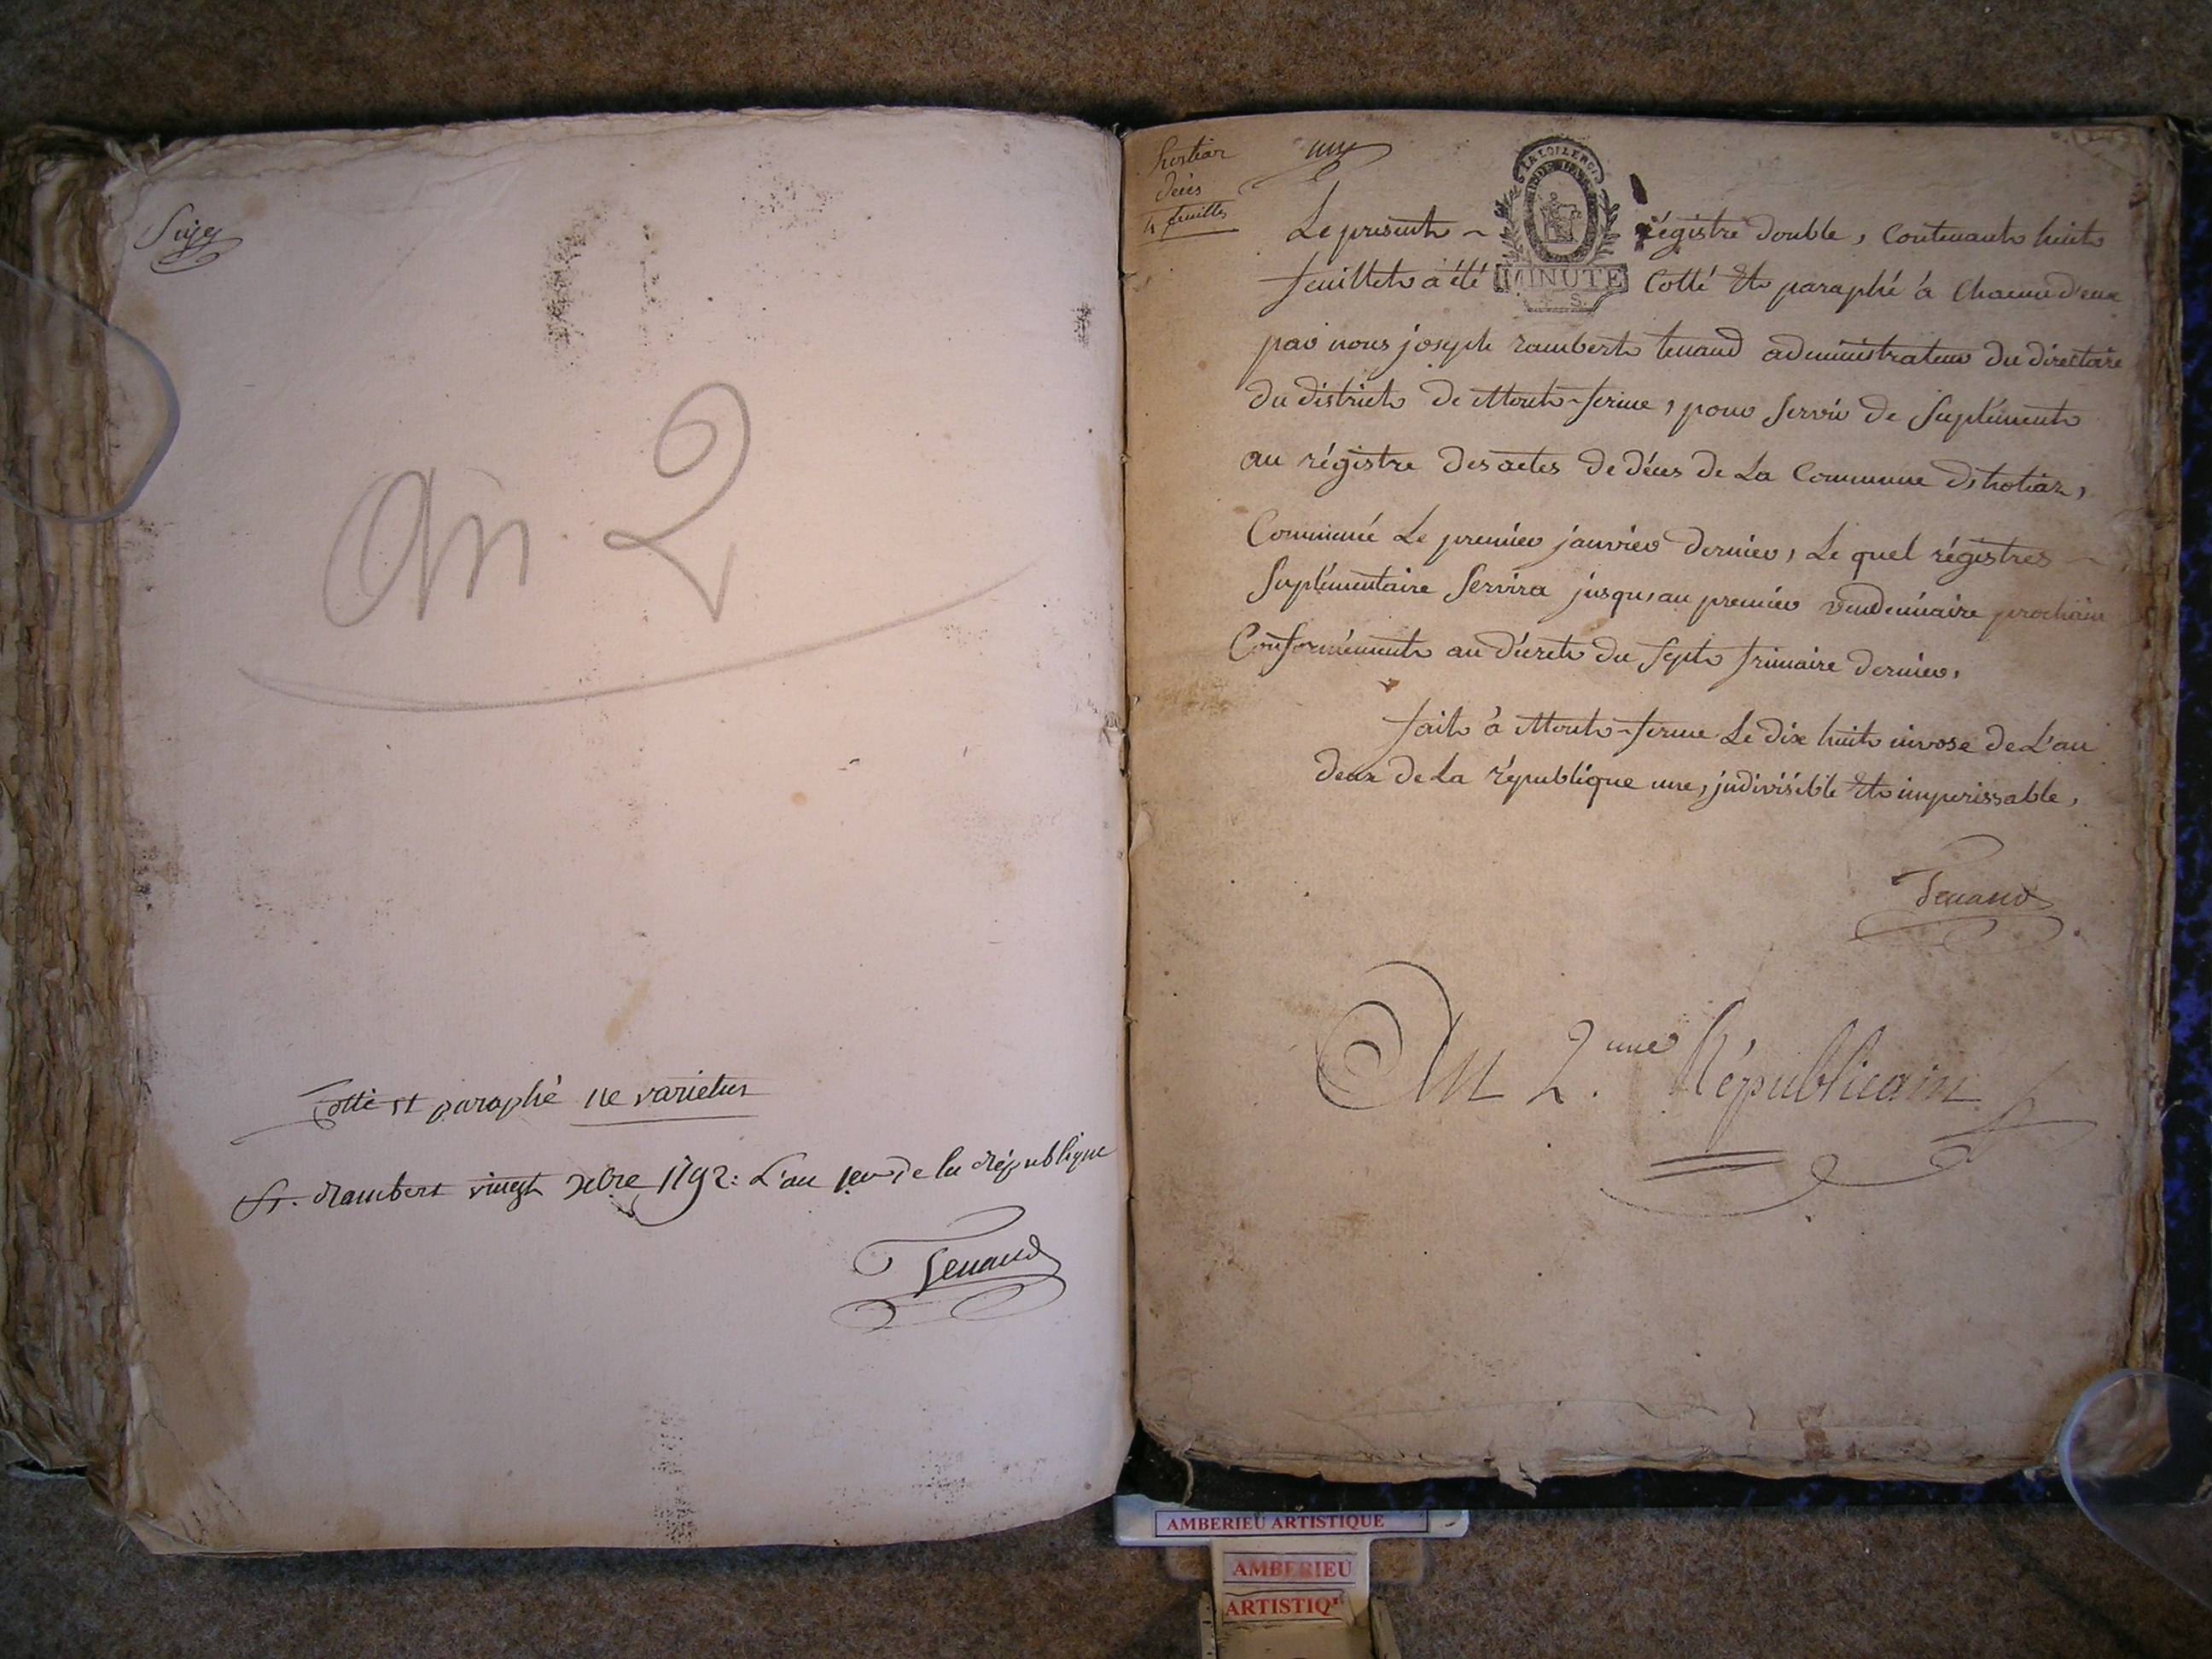 An 2
Cotté et paraphé ne varietur
St. Rambert vingt Xbre 1792: L'an 1er de la République
Tenand
hostiaz
décès
4 feuilles
une
LA LOI LE ROI
MINUTE
4 S.
Le présent ~ régistre double, Contenant huit
feuillets à été Cotté Et paraphé à Chacun d'eux
par nous joseph rambert tenand administrateur du directoire
du district de Mont-ferme, pour servir de Suplément
au régistre des actes de décès de La Commune d'hotiaz,
Commencé Le premier janvier dernier, Le quel régistres ~
Suplémentaire Servira jusqu'au premier vendemiaire prochain
Conformément au décret du Sept frimaire dernier,
fait à Mont-ferme Le dix huit nivose de L'an
deux de La république une, indivisible Et imperissable,
Tenand
An 2.eme Républicain
AMBERIEU ARTISTIQUE
AMBERIEU
ARTISTIQ